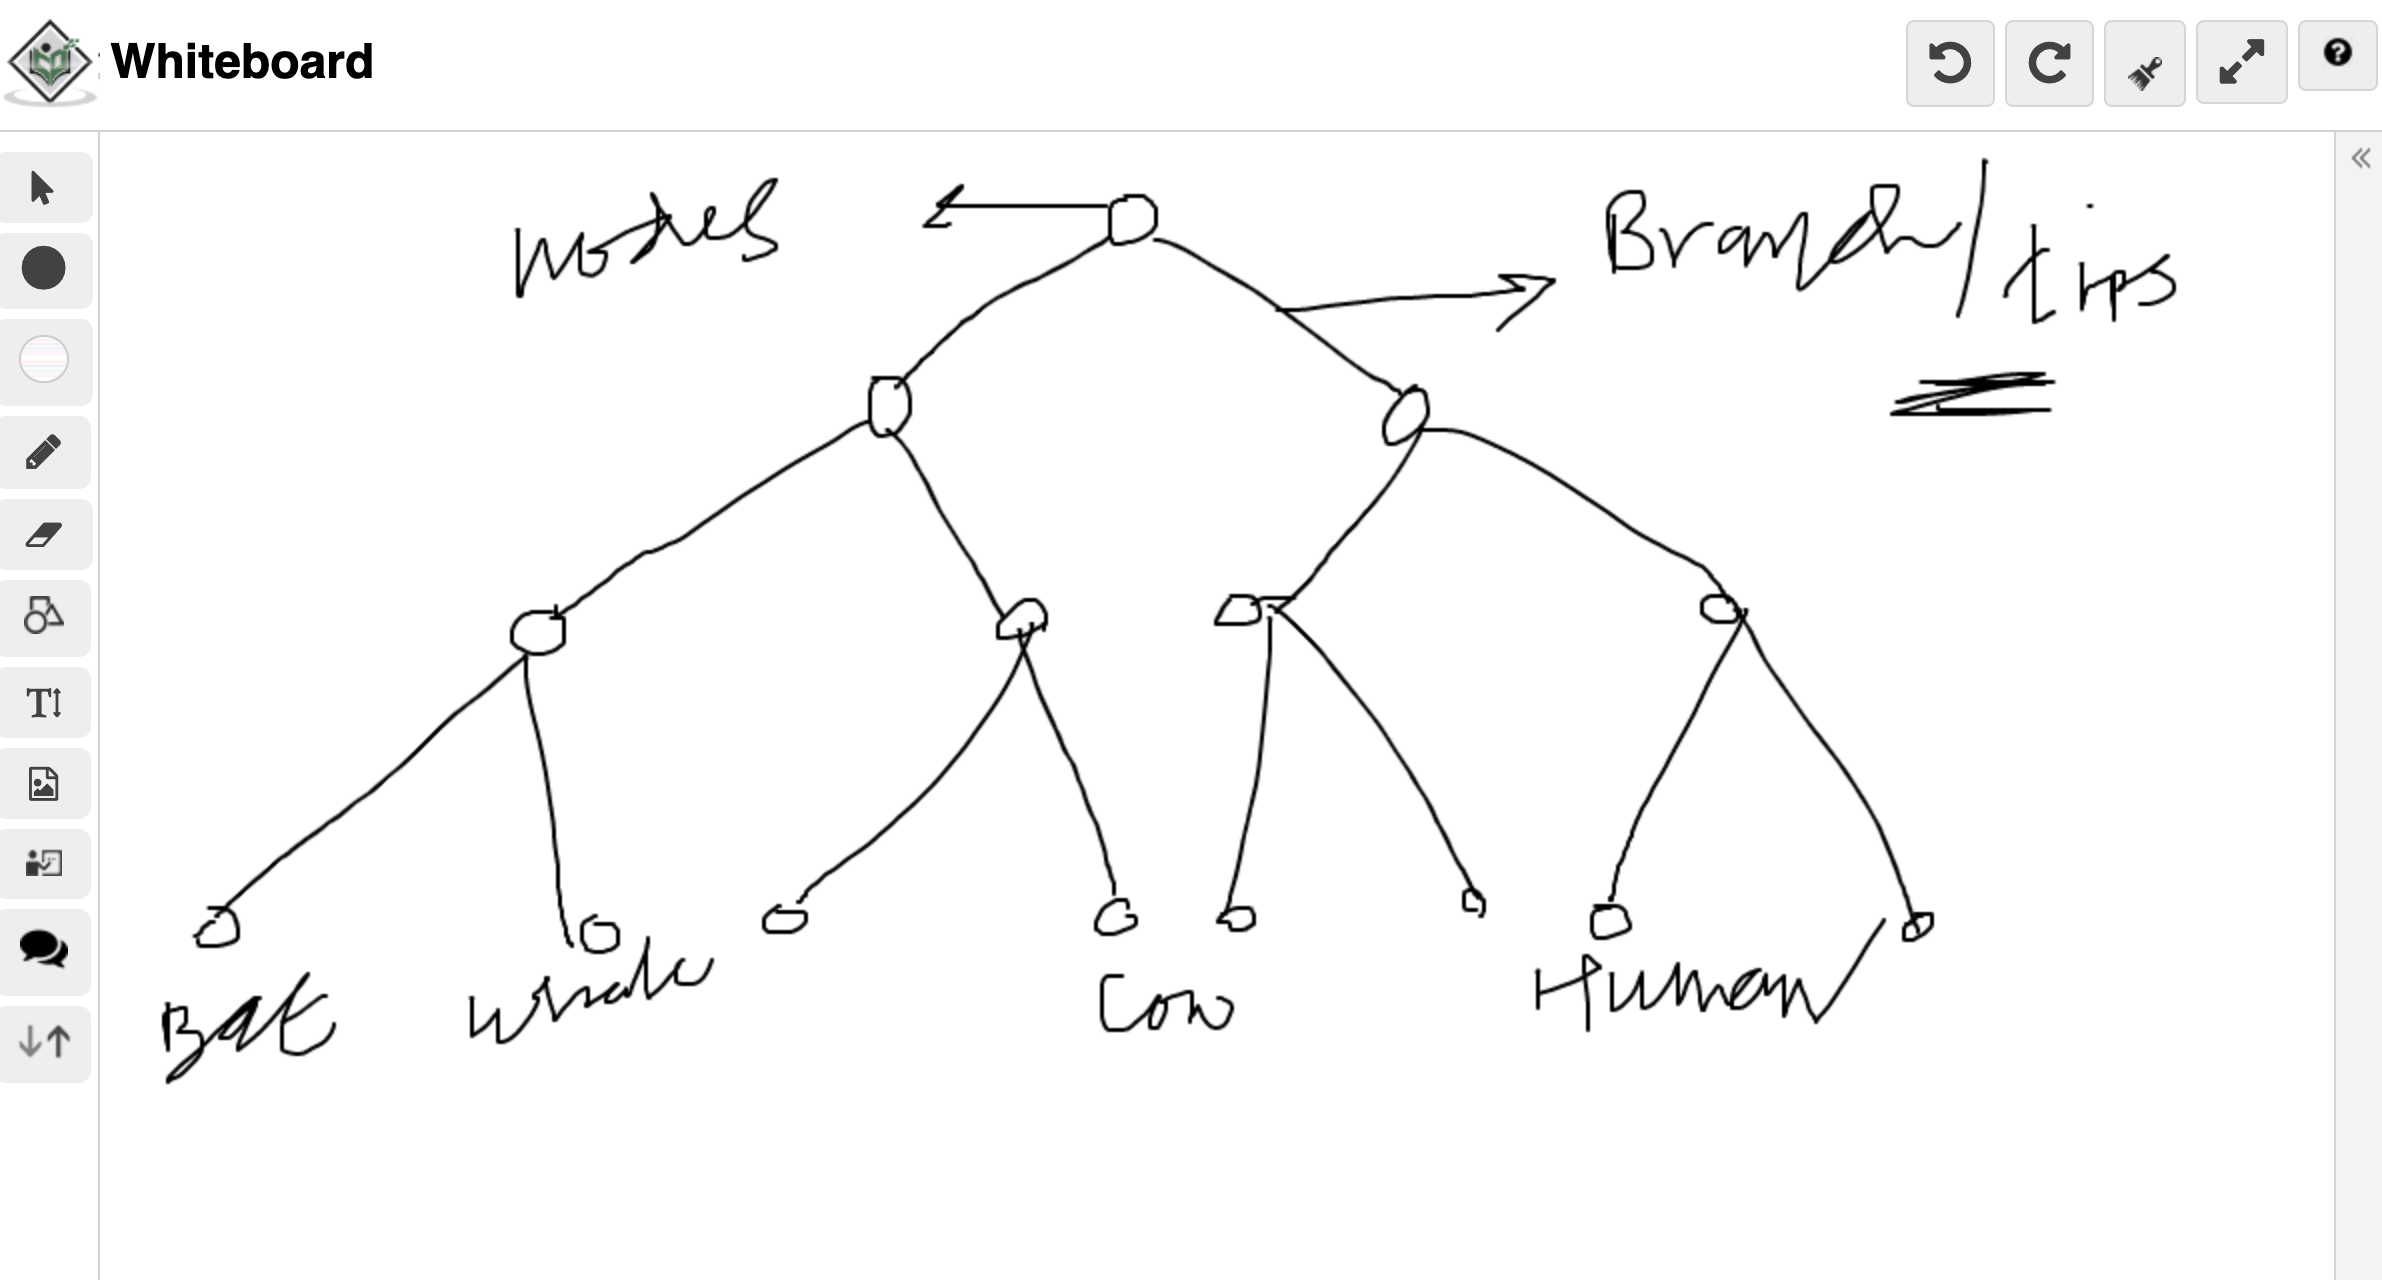 Whiteboard
Nodes
Branch/tips
Bat
Whale
Cow
Human